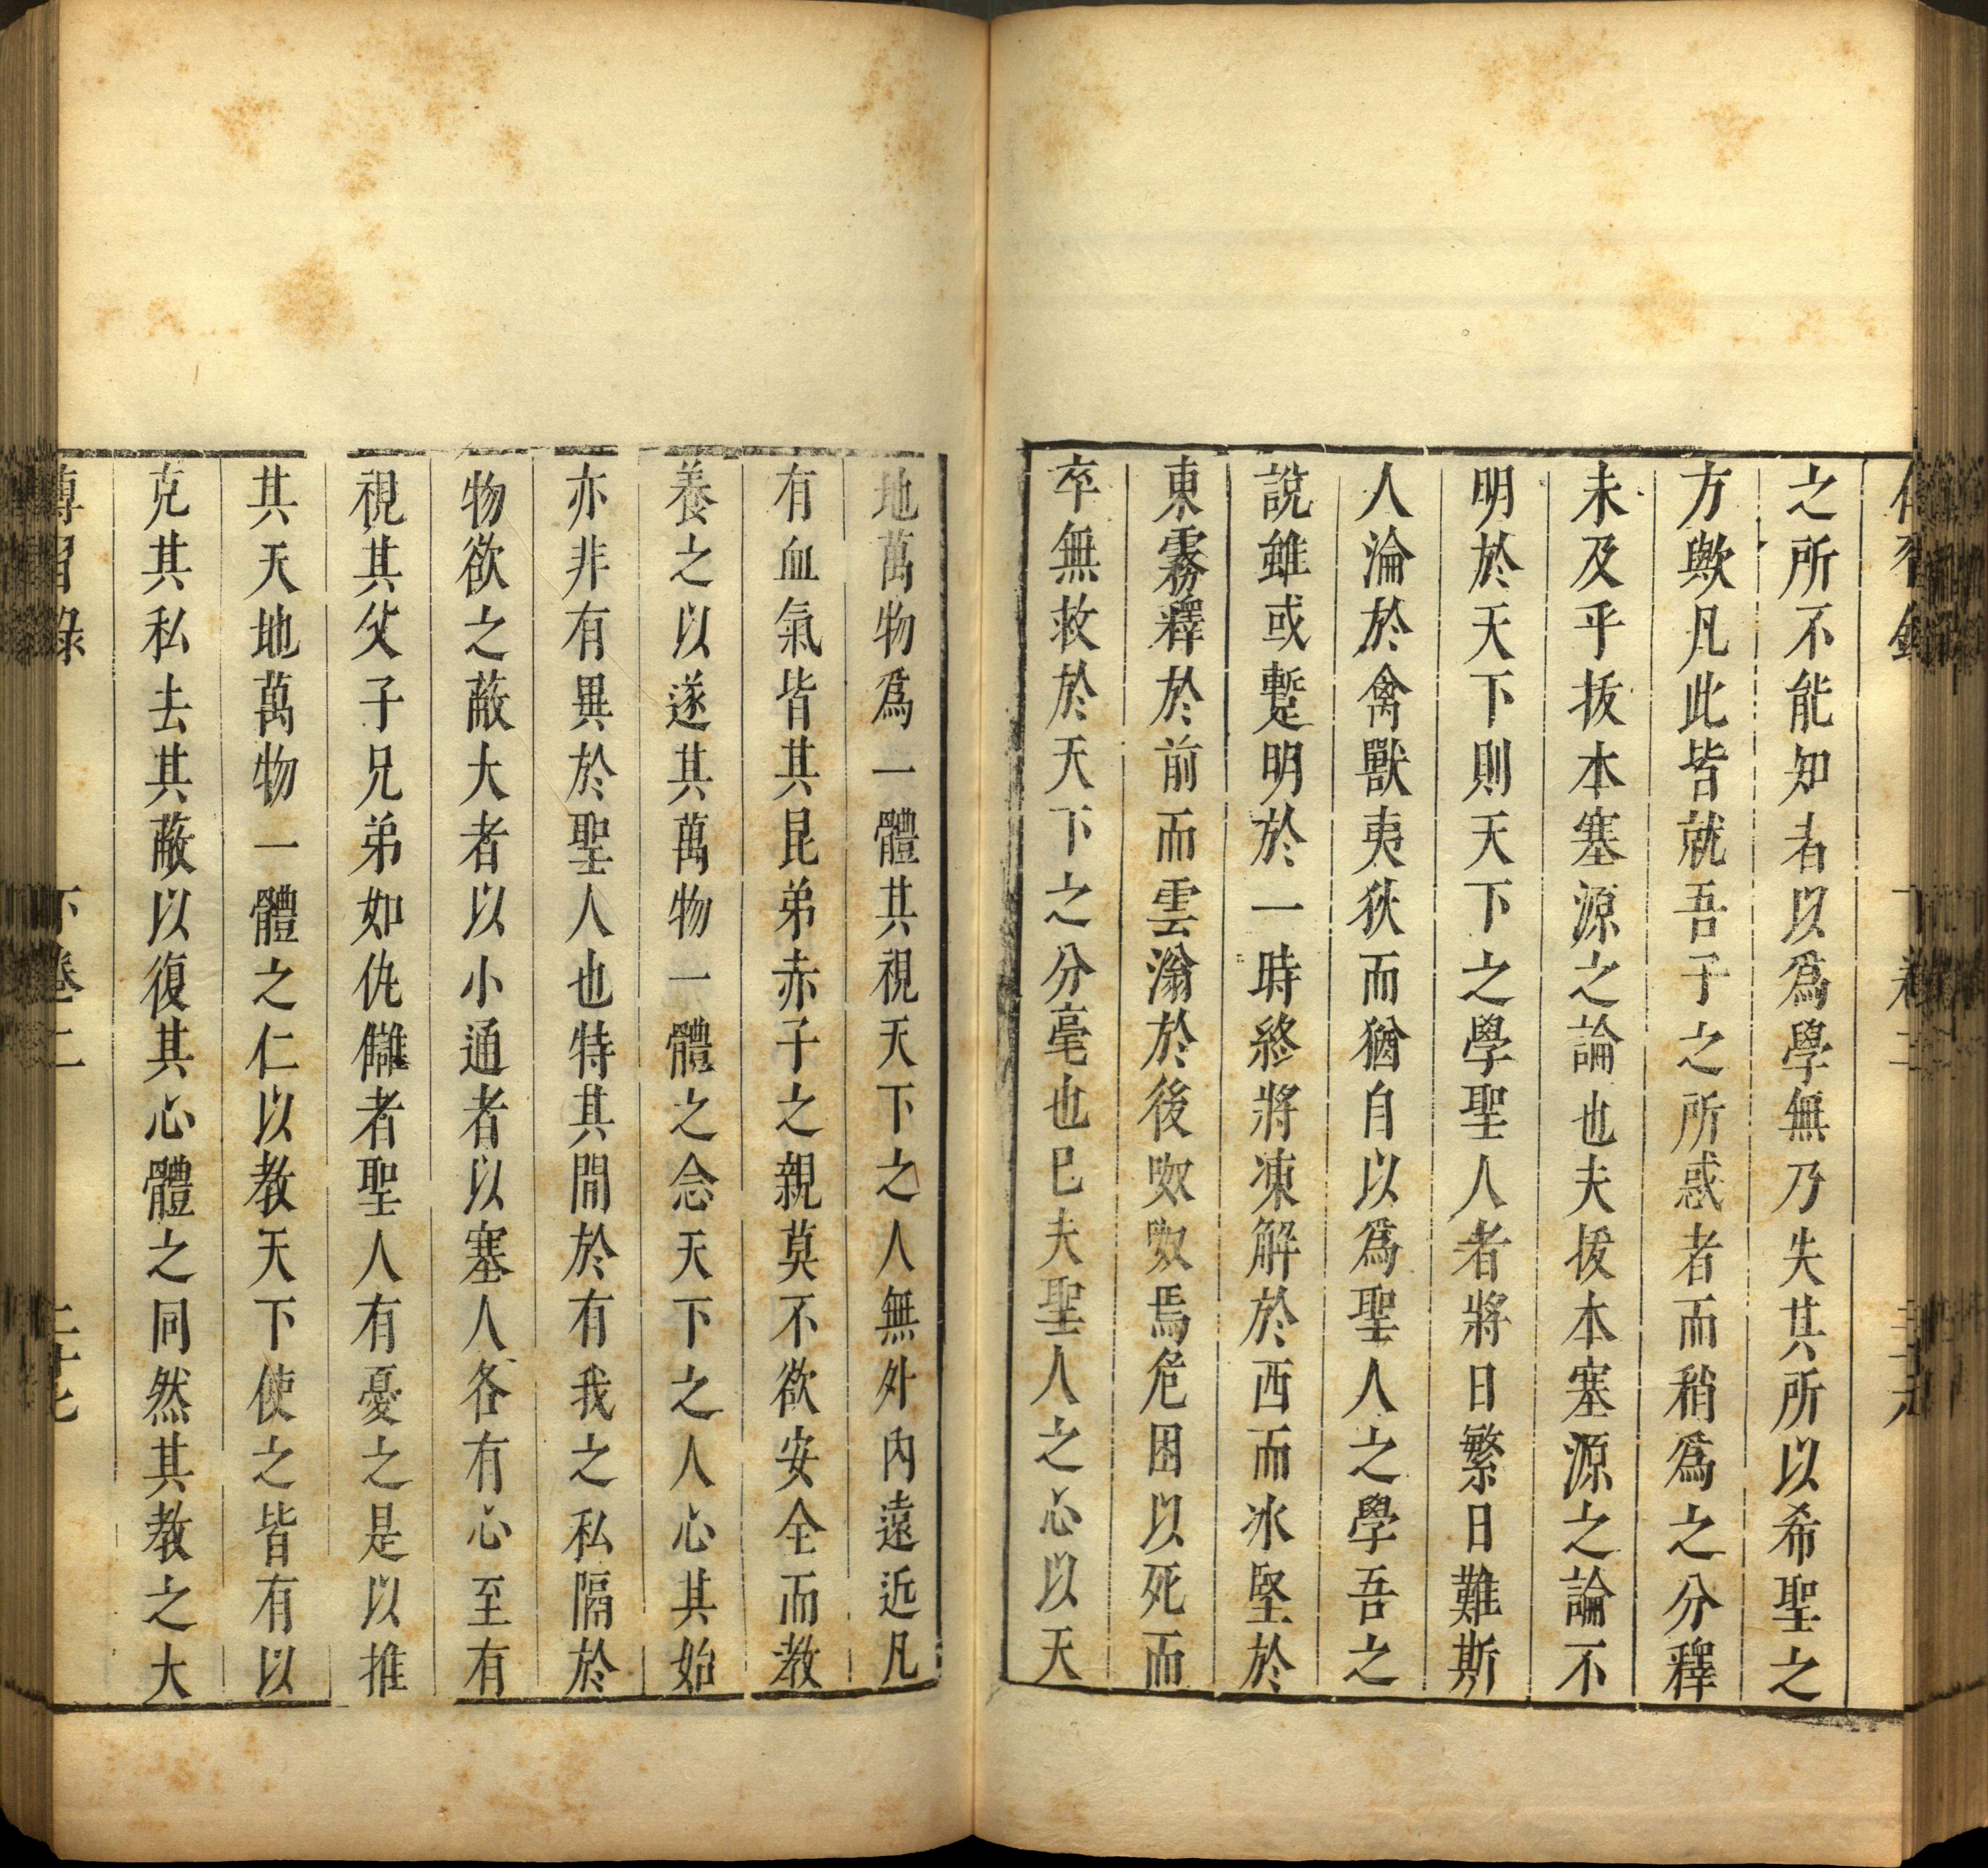 之所不能知者以爲學無乃失其所以希聖之
方歟凡此皆就吾子之所惑者而稍爲之分釋
未及乎拔本塞源之論也夫拔本塞源之論不
明於天下則天下之學聖人者將日繁日難斯
人淪於禽獸夷狄而猶自以爲聖人之學吾之
說雖或蹔明於一時終將凍解於西而冰堅於
東霧釋於前而雲滃於後呶呶焉危困以死而
卒無救於天下之分毫也已夫聖人之心以天
地萬物爲一體其視天下之人無外內遠近凡
有血氣皆其昆弟赤子之親莫不欲安全而教
養之以遂其萬物一體之念天下之人心其始
亦非有異於聖人也特其間於有我之私隔於
物欲之蔽大者以小通者以塞人各有心至有
視其父子兄弟如仇讎者聖人有憂之是以推
其天地萬物一體之仁以教天下使之皆有以
克其私去其蔽以復其心體之同然其教之大
傳習錄 下卷二